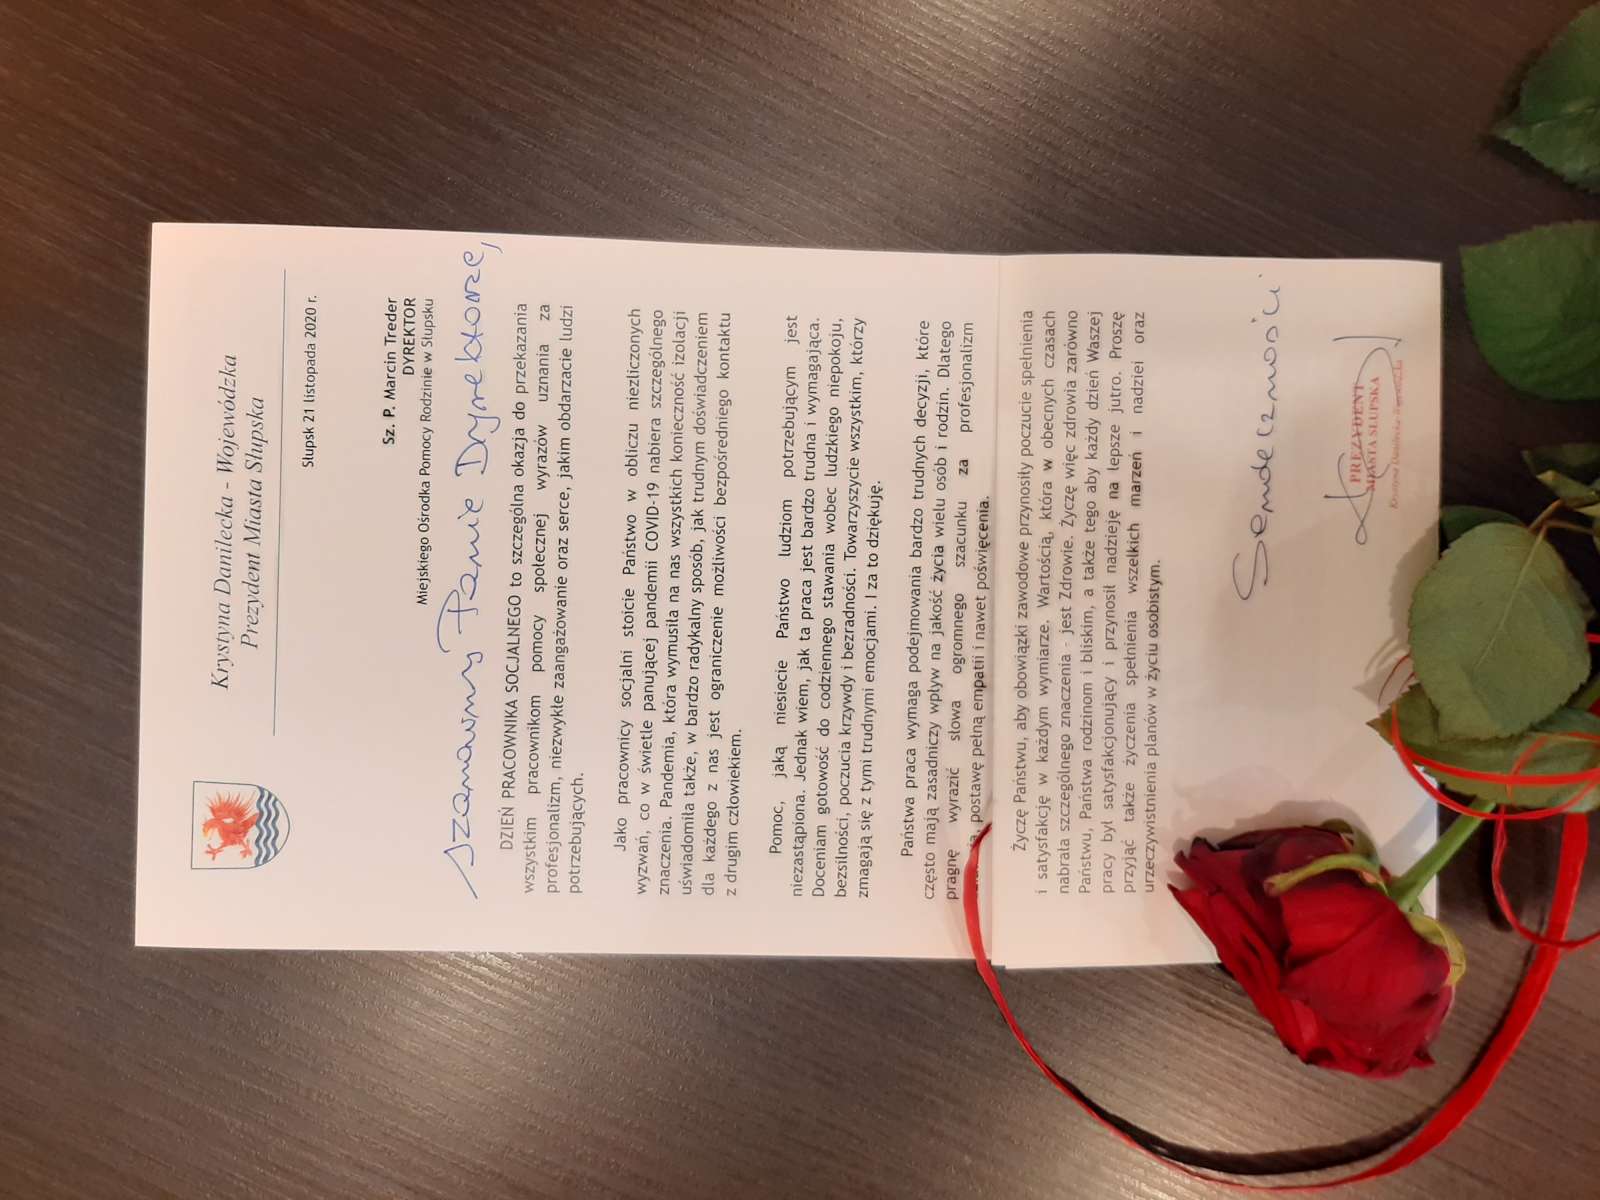 Krystyna Danilecka - Wojewódzka
Prezydent Miasta Słupska
Słupsk 21 listopada 2020 r.
Sz. P. Marcin Treder
DYREKTOR
Miejskiego Ośrodka Pomocy Rodzinie w Słupsku
Szanowny Panie Dyrektorze,
DZIEŃ PRACOWNIKA SOCJALNEGO to szczególna okazja do przekazania
wszystkim pracownikom pomocy społecznej wyrazów uznania za
profesjonalizm, niezwykłe zaangażowanie oraz serce, jakim obdarzacie ludzi
potrzebujących.
Jako pracownicy socjalni stoicie Państwo w obliczu niezliczonych
wyzwań, co w świetle panującej pandemii COVID-19 nabiera szczególnego
znaczenia. Pandemia, która wymusiła na nas wszystkich konieczność izolacji
uświadomiła także, w bardzo radykalny sposób, jak trudnym doświadczeniem
dla każdego z nas jest ograniczenie możliwości bezpośredniego kontaktu
z drugim człowiekiem.
Pomoc, jaką niesiecie Państwo ludziom potrzebującym jest
niezastąpiona. Jednak wiem, jak ta praca jest bardzo trudna i wymagająca.
Doceniam gotowość do codziennego stawania wobec ludzkiego niepokoju,
bezsilności, poczucia krzywdy i bezradności. Towarzyszycie wszystkim, którzy
zmagają się z tymi trudnymi emocjami. I za to dziękuję.
Państwa praca wymaga podejmowania bardzo trudnych decyzji, które
często mają zasadniczy wpływ na jakość życia wielu osób i rodzin. Dlatego
pragnę wyrazić słowa ogromnego szacunku za profesjonalizm
postawę pełną empatii i nawet poświęcenia.
Życzę Państwu, aby obowiązki zawodowe przynosiły poczucie spełnienia
i satysfakcję w każdym wymiarze. Wartością, która w obecnych czasach
nabrała szczególnego znaczenia - jest Zdrowie. Życzę więc zdrowia zarówno
Państwu, Państwa rodzinom i bliskim, a także tego aby każdy dzień Waszej
pracy był satysfakcjonujący i przynosił nadzieję na lepsze jutro. Proszę
przyjąć także życzenia spełnienia wszelkich marzeń i nadziei oraz
urzeczywistnienia planów w życiu osobistym.
Serdeczności
PREZYDENT
MIASTA SŁUPSKA
Krystyna Danilecka-Wojewódzka